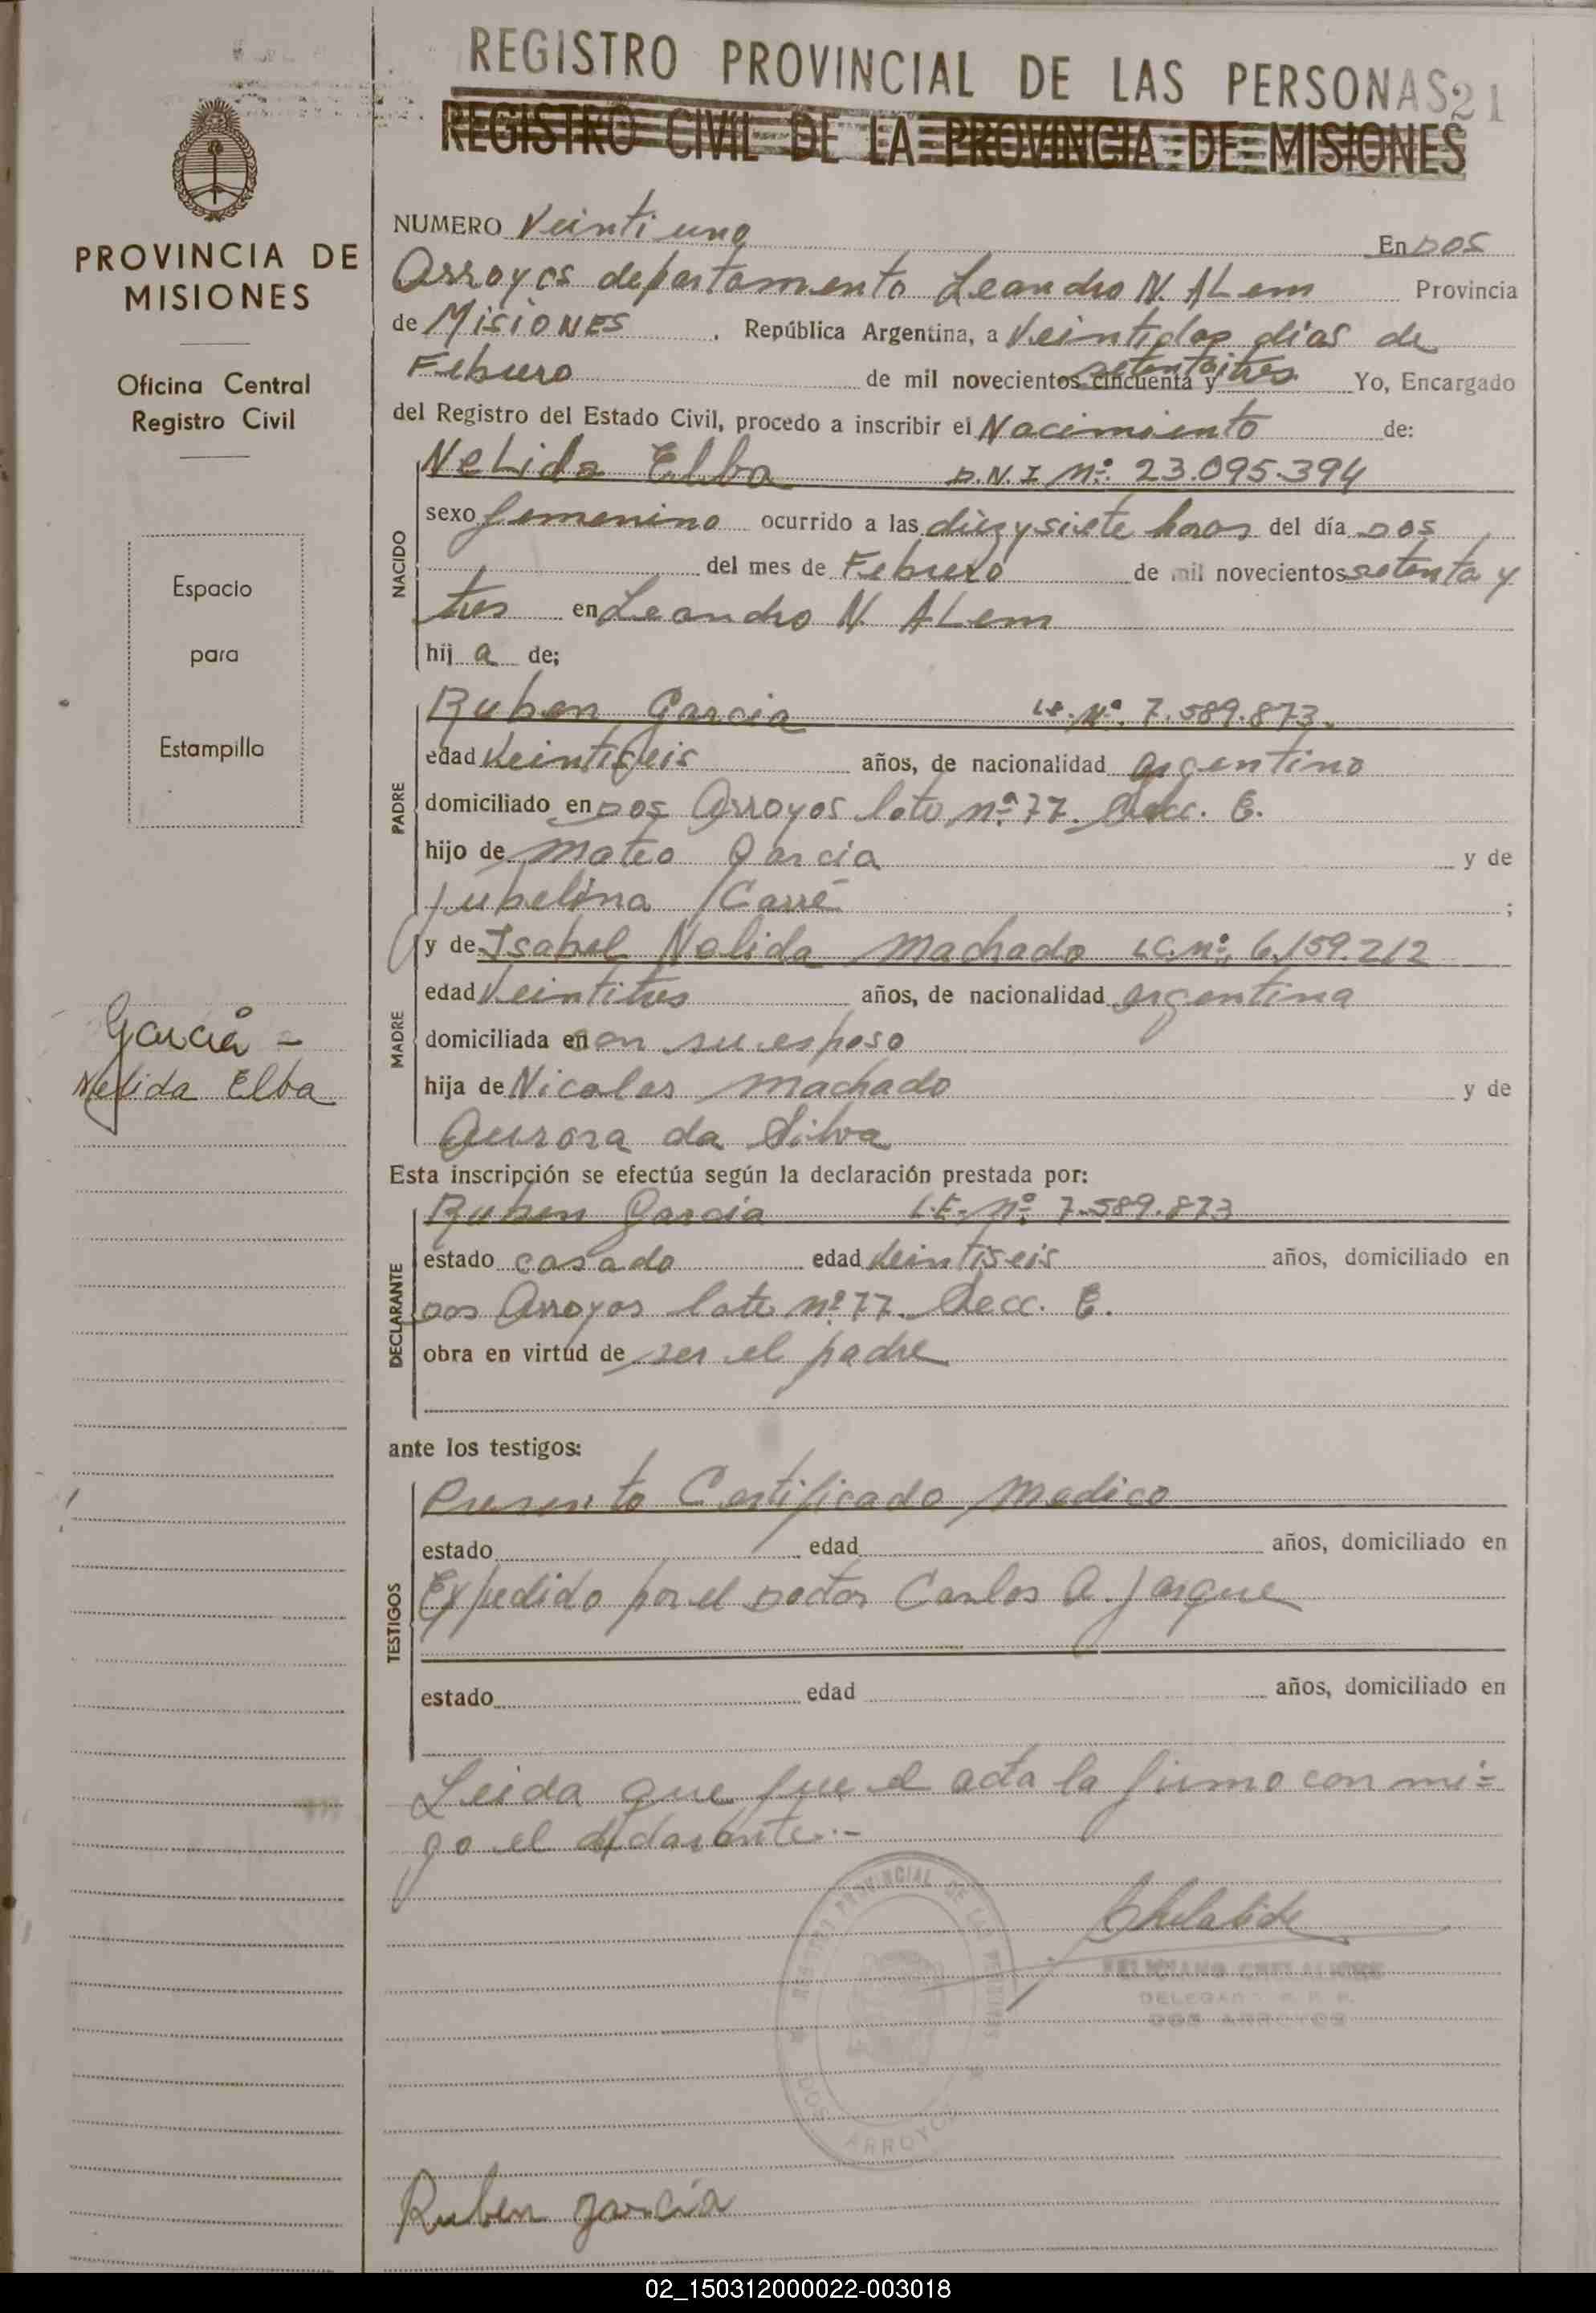 REGISTRO PROVINCIAL DE LAS PERSONAS 21
REGISTRO CIVIL DE LA PROVINCIA DE MISIONES
PROVINCIA DE
MISIONES
Oficina Central
Registro Civil
Espacio
para
Estampilla
Garcia -
Nelida Elba
NUMERO Veinti uno En DOS
Arroyos departamento Leandro N. ALem Provincia
de MisiONES, República Argentina, a Veintidos dias de
Febrero de mil novecientos cincuenta y setentaitres Yo, Encargado
del Registro del Estado Civil, procedo a inscribir el Nacimiento de:
NACIDO
NeLida Elba D.N.I Nº: 23.095.394
sexo femenino ocurrido a las diez y siete horas del día DOS
del mes de Febrero de mil novecientos setenta y
tres en Leandro N. ALem
hij a de;
PADRE
Ruben Garcia L.E. Nº. 7.589.873.
edad Veintiseis años, de nacionalidad argentino
domiciliado en DOS Arroyos lote nº 77. Secc. E.
hijo de Mateo Garcia y de
Jubelina Carré ;
MADRE
y de Isabel Nelida Machado LC. nº: 6.159.212
edad Veintitres años, de nacionalidad argentina
domiciliada en con su esposo
hija de Nicolas Machado y de
Aurora da Silva
Esta inscripción se efectúa según la declaración prestada por:
DECLARANTE
Ruben Garcia L.E. nº: 7.589.873
estado casado edad Veintiseis años, domiciliado en
DOS Arroyos lote nº 77. Secc. E.
obra en virtud de ser el padre
ante los testigos:
TESTIGOS
Presento Certificado Medico
estado edad años, domiciliado en
Expedido por el Doctor Carlos A. Jarque
estado edad años, domiciliado en
Leida que fue el acta la firmo con mi=
go el declarante.-
REGISTRO PROVINCIAL DE LAS PERSONAS
DOS ARROYOS
DELEGADO R. P. P.
DOS ARROYOS
Ruben garcia
02_150312000022-003018